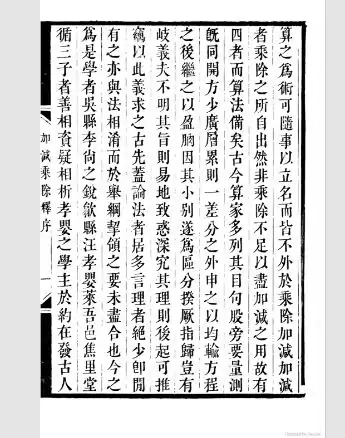 算之為術可隨事以立名而皆不外於乘除加減加減
者乘除之所自出然非乘除不足以盡加減之用故有
四者而算法備矣古今算家多列其目句股旁要量測
旣同開方少廣層累則一差分之外申之以均輸方程
之後繼之以盈朒因其小别遂為區分揆厥指歸豈有
岐義夫不明其旨則易地致惑深究其理則後起可推
竊以此義求之古先蓋論法者居多言理者絶少卽閒
有之亦與法相淆而於舉綱挈領之要未盡合也今之
為是學者吳縣李尙之銳歙縣汪孝嬰萊吾邑焦里堂
循三子者善相資疑相析孝嬰之學主於約在發古人
加減乘除釋序
一